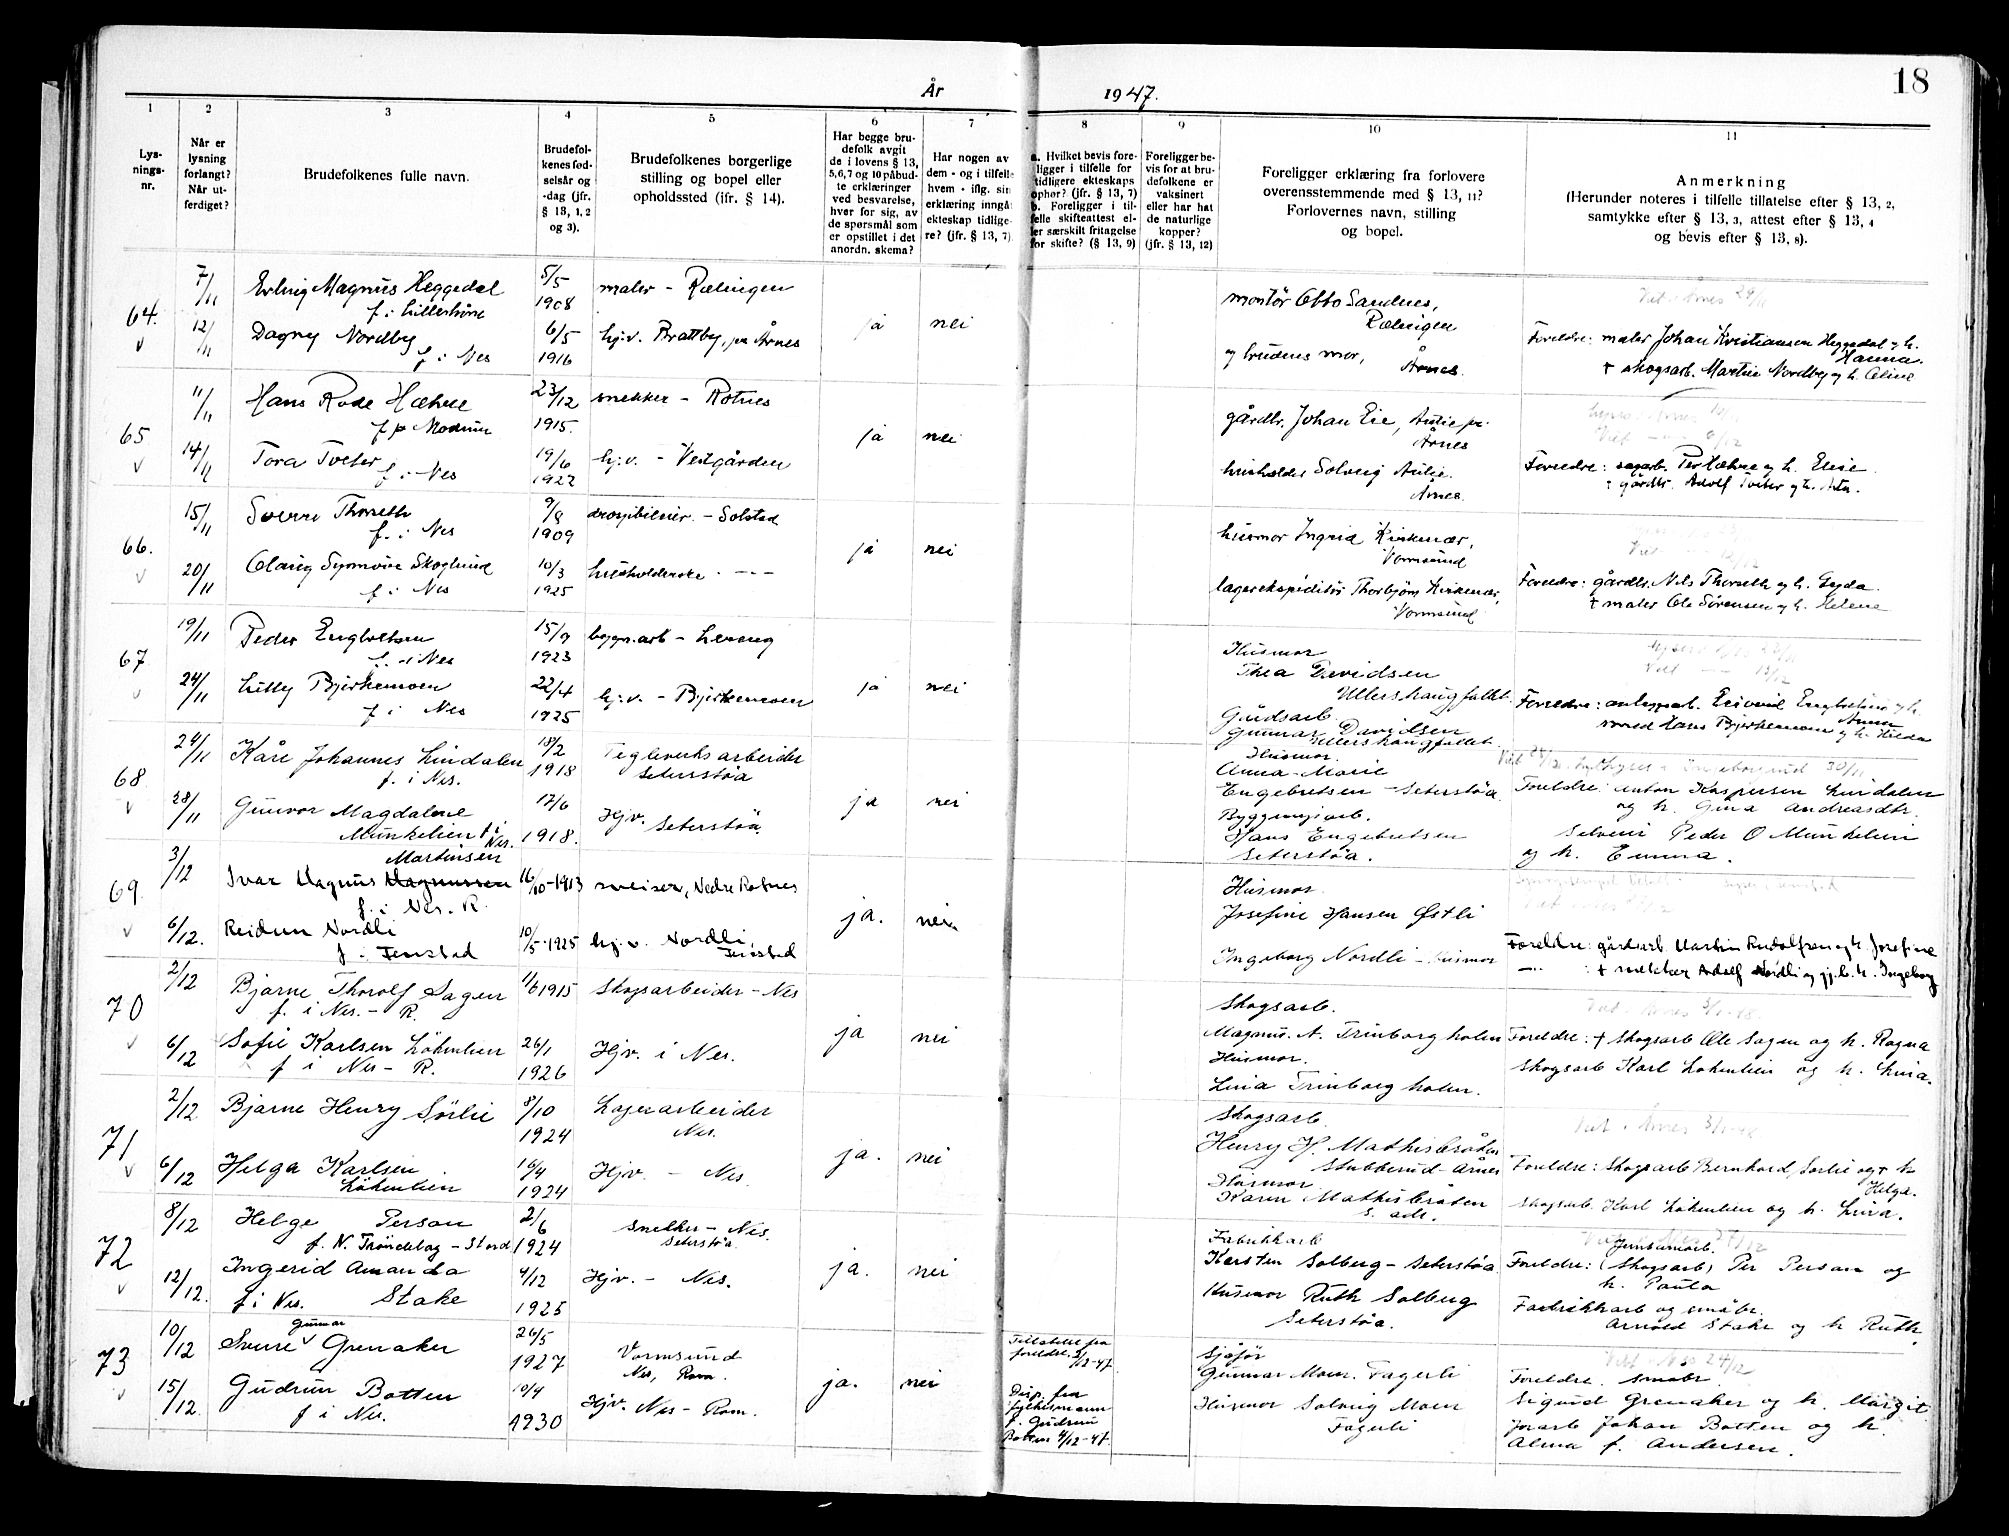 18
År 1947.
1 2 3 4 5 6 7 8 9 10 11
Lys-
nings-
nr.
Når er
lysning
forlangt?
Når ut-
ferdiget?
Brudefolkenes fulle navn.
Brudefol-
kenes fød-
selsår og
-dag (jfr.
§ 13, 1, 2
og 3).
Brudefolkenes borgerlige
stilling og bopel eller
opholdssted (ifr. § 14).
Har begge bru-
defolk avgit
de i lovens § 13,
5,6,7 og 10 påbud-
te erklæringer
ved besvarelse,
hver for sig, av
de spørsmål som
er opstillet i det
anordn. skema?
Har nogen av
dem - og i tilfelle
hvem - iflg. sin
erklæring inngå
ekteskap tidlige-
re? (jfr. § 13, 7)
a. Hvilket bevis fore-
ligger i tilfelle for
tidligere ekteskaps
ophør? (jfr. § 13, 7)
b. Foreligger i til-
felle skifteattest el-
ler særskilt fritagelse
for skifte? (§ 13, 9)
Foreligger be-
vis for at bru-
defolkene er
vaksinert
eller har hat
de naturlige
kopper?
(jfr. § 13, 12)
Foreligger erklæring fra forlovere
overensstemmende med § 13, 11?
Forlovernes navn, stilling
og bopel.
Anmerkning
(Herunder noteres i tilfelle tillatelse efter § 13, 2,
samtykke efter § 13, 3, attest efter § 13, 4
og bevis efter § 13, 8).
64.
7/11 Erling Magnus Heggedal 5/5 1908 maler - Rælingen
f. i Lillestrøm
12/11 Dagny Nordby 6/5 1916 hj.v. Brattby, pr Årnes ja nei
f. i Nes
montør Otto Sandnes,
Rælingen
og brudens mor,
Årnes.
Foreldre: maler Johan Kristiansen Heggedal og h.
Hanna.
+ skogsarb. Martin Nordby og h. Oline
65
11/11 Hans Rode Hæhre 23/12 1915. snekker - Rotnes
f. på Modum
14/11 Tora Tveter 19/6 1922 hj.v. - Vestgården ja nei
f. i Nes
gårdbr. Johan Eie, Aulie pr.
Årnes
husholder Solveig Aulie.
Årnes.
Foreldre: sagarb. Per Hæhre og h. Elise.
gårdbr. Adolf Tveter og h. Asta.
66.
15/11 Sverre Thoreth 9/8 1909 drosjebileier. - Solstad
f. i Nes
20/11 Olaug Synnøve Skoglund 10/3 1925 husholderske - - - ja nei
f. i Nes
husmor Ingrid Kirkenær,
Vormsund
lagerekspeditør Thorbjørn Kirkenær,
Vormsund
Foreldre: gårdbr. Nils Thoreth og h. Gyda.
+ maler Ole Sørensen og h. Helene
67
19/11 Peder Engbretsen 15/9 1923 bygn.arb -
f. i Nes
24/11 Lilly Bjerkemoen 22/4 1925 hj.v. - Bjerkemoen ja nei
f. i Nes
Husmor
Thea Davidsen
Ullershaugfallet.
Gårdsarb
Gunnar Davidsen
Ullershaugfallet.
Foreldre: anleggsarb. Eivind Engbretsen og h.
Anna
smed Hans Bjerkemoen og h. Hilda
68
24/11 Kåre Johannes Lindalen 18/2 1918 Teglverksarbeider
f. i Nes. Seterstøa
28/11 Gunvor Magdalene 17/6 1918. Hjv. Seterstøa ja nei
Munkelien f. i Nes.
Husmor.
Anna-Marie
Engebretsen - Seterstøa.
Byggningsarb.
Hans Engebretsen
Seterstøa.
Foreldre: Anton Kaspersen Lindalen
og h. Gina Andreasdtr.
Selveier Peder O Munkelien
og h. Emma.
69.
Martinsen
3/12 Ivar Magnus Magnussen 16/10-1913 sveiser, Nedre Rotnes
f. i Nes. R.
6/12. Reidun Nordli 10/5-1925 hj.v. Nordli, ja. nei.
f. i Fenstad Fenstad
Husmor.
Josefine Hansen Østli
Ingeborg Nordli - husmor
Foreldre: gårdsarb Martin Rudolfsen og h. Josefine
-"- : + snekker Adolf Nordli og gj.l. h. Ingeborg
70
2/12 Bjarne Thorolf Sagen 1/6 1915 Skogsarbeider - Nes
f. i Nes. - R.
6/12 Sofie Karlsen Løkenlien 26/1 1926 Hjv. i Nes. ja nei
f i Nes - R.
Skogsarb.
Magnus. A. Trinborgholen
Husmor.
Lina Trinborgholen.
Foreldre: + skogsarb Ole Sagen og h. Ragna
Skogsarb Karl Løkenlien og h. Lina.
71
2/12 Bjarne Henry Sørlie 8/10 1924 Lagerarbeider
Nes.
6/12 Helga Karlsen 16/4 1924 Hjv. - Nes ja. nei
Løkenlien
Skogsarb.
Henry H. Mathisbråten
Stubberud - Årnes
Husmor
Karen Mathisbråten
s. adr.
Foreldre: Skogsarb Bernhard Sørlie og + h
Helga.
skogsarb. Karl Løkenlien og h. Lina.
72
8/12 Helge Person 2/6 1924 Snekker - Nes.
f. N. Trøndelag - Stod Seterstøa.
12/12. Ingerid Amanda 4/12 1925 Hjv. - Nes. ja. nei
f i Nes. Stake
Fabrikkarb
Karsten Solberg - Seterstøa
Husmor Ruth Solberg
Seterstøa.
Foreldre: (Skogsarb) Per Person og
h. Paula
Fabrikkarb og småbr.
Arnold Stake og h Ruth.
73
10/12 Sverre Gunnar Grenaker 26/5 1927 Vormsund
Nes, Rom.
15/12. Gudrun Botten 10/4 1930 Hjv. Nes - Rom. ja. nei
f i Nes.
Tillatelse fra
foreldre. /12-47
Disp. fra
fylkesmann
f. Gudrun
Botten 4/12-47.
Sjåfør
Gunnar Moen. Fagerli
Husmor Solveig Moen
Fagerli
Foreldre. småbr.
Sigurd Grenaker og h. Margit
Johan Botten og h.
Alma f. Andersen.